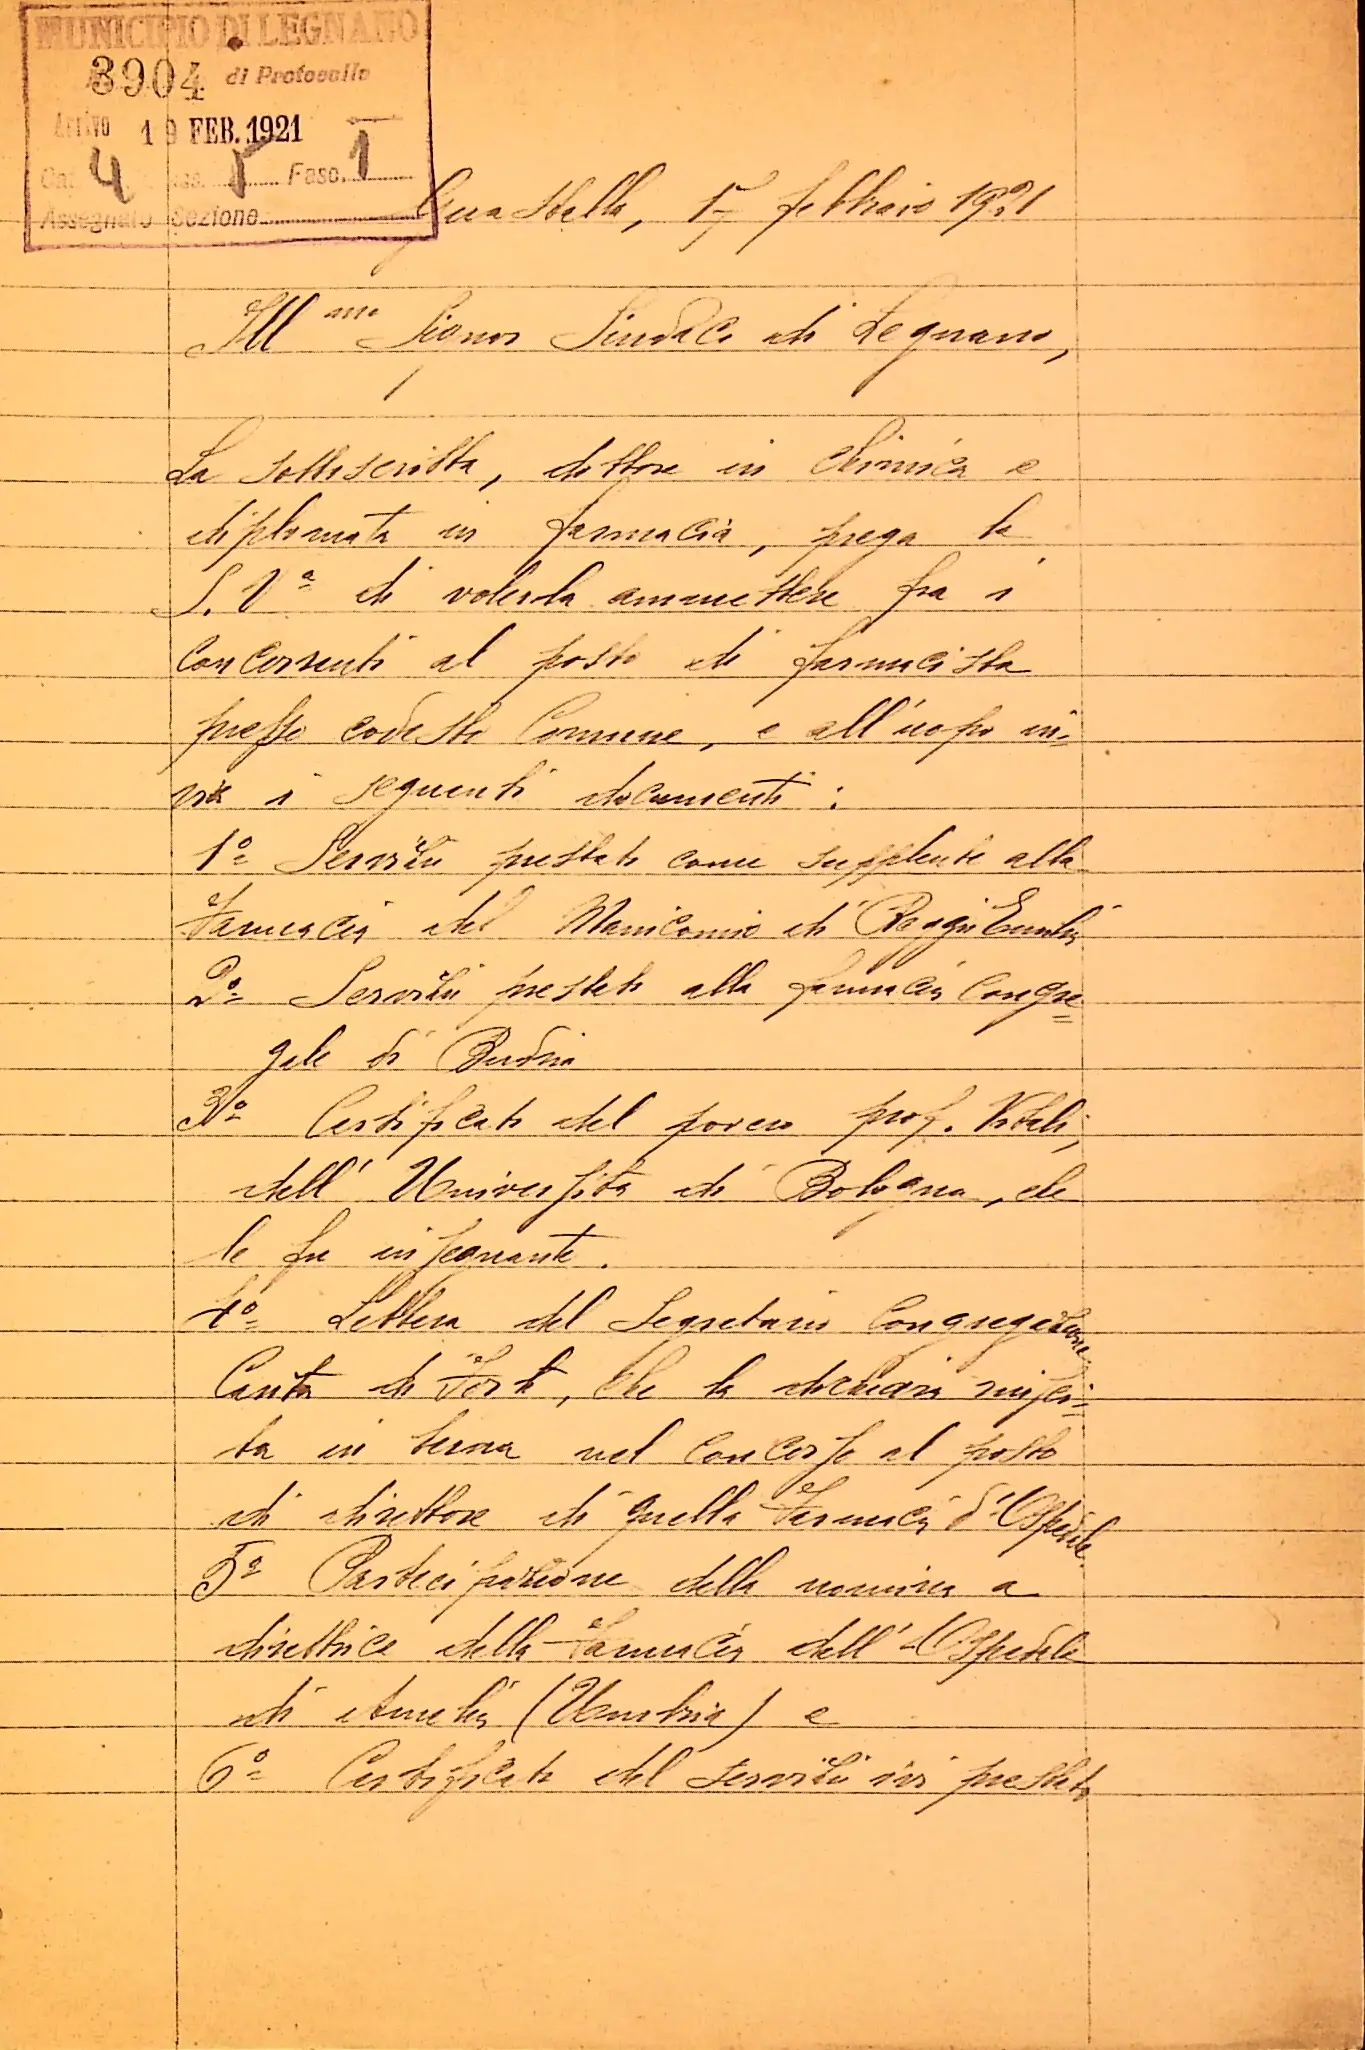 MUNICIPIO DI LEGNANO
3904 di Protocollo
Arrivo 19 FEB. 1921
Cat. 4 Fasc. 1
Assegnato Sezione
Guastalla, 17 febbraio 1921
Ill mo Signor Sindaco di Legnano,
La sottoscritta, dottore in chimica e
diplomata in farmacia, prega la
S. Vª di volerla ammettere fra i
concorrenti al posto di farmacista
presso codesto Comune, e all'uopo in-
via i seguenti documenti:
1º Servizio prestato come supplente alla
Farmacia del Manicomio di Reggio Emilia
2º Servizio prestato alla farmacia Congre=
gale di Budrio
3º Certificato del povero prof. Vitali,
dell'Università di Bologna, che
le fu insegnante.
4º Lettera del Segretario Congregazione
Carità di Forlì, che la dichiara riusci-
ta in terna nel concorso al posto
di direttore di quella Farmacia d'Ospedale.
5º Partecipazione della nomina a
direttrice della Farmacia dell'Ospedale
di Amelia (Umbria) e
6º Certificato del servizio ivi prestato